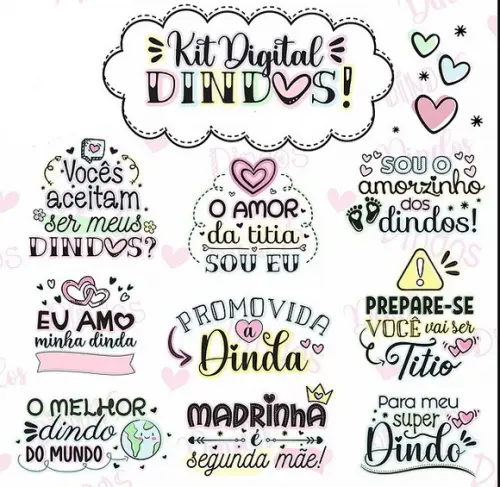 Kit Digital
DINDOS!
Vocês
aceitam
ser meus
DINDOS?
O AMOR
da titia
SOU EU
SOU O
amorzinho
dos
dindos!
EU AMO
minha dinda
PROMOVIDA
à
Dinda
PREPARE-SE
VOCÊ vai ser
Titio
O MELHOR
dindo
DO MUNDO
MADRINHA
é
segunda mãe!
Para meu
super
Dindo